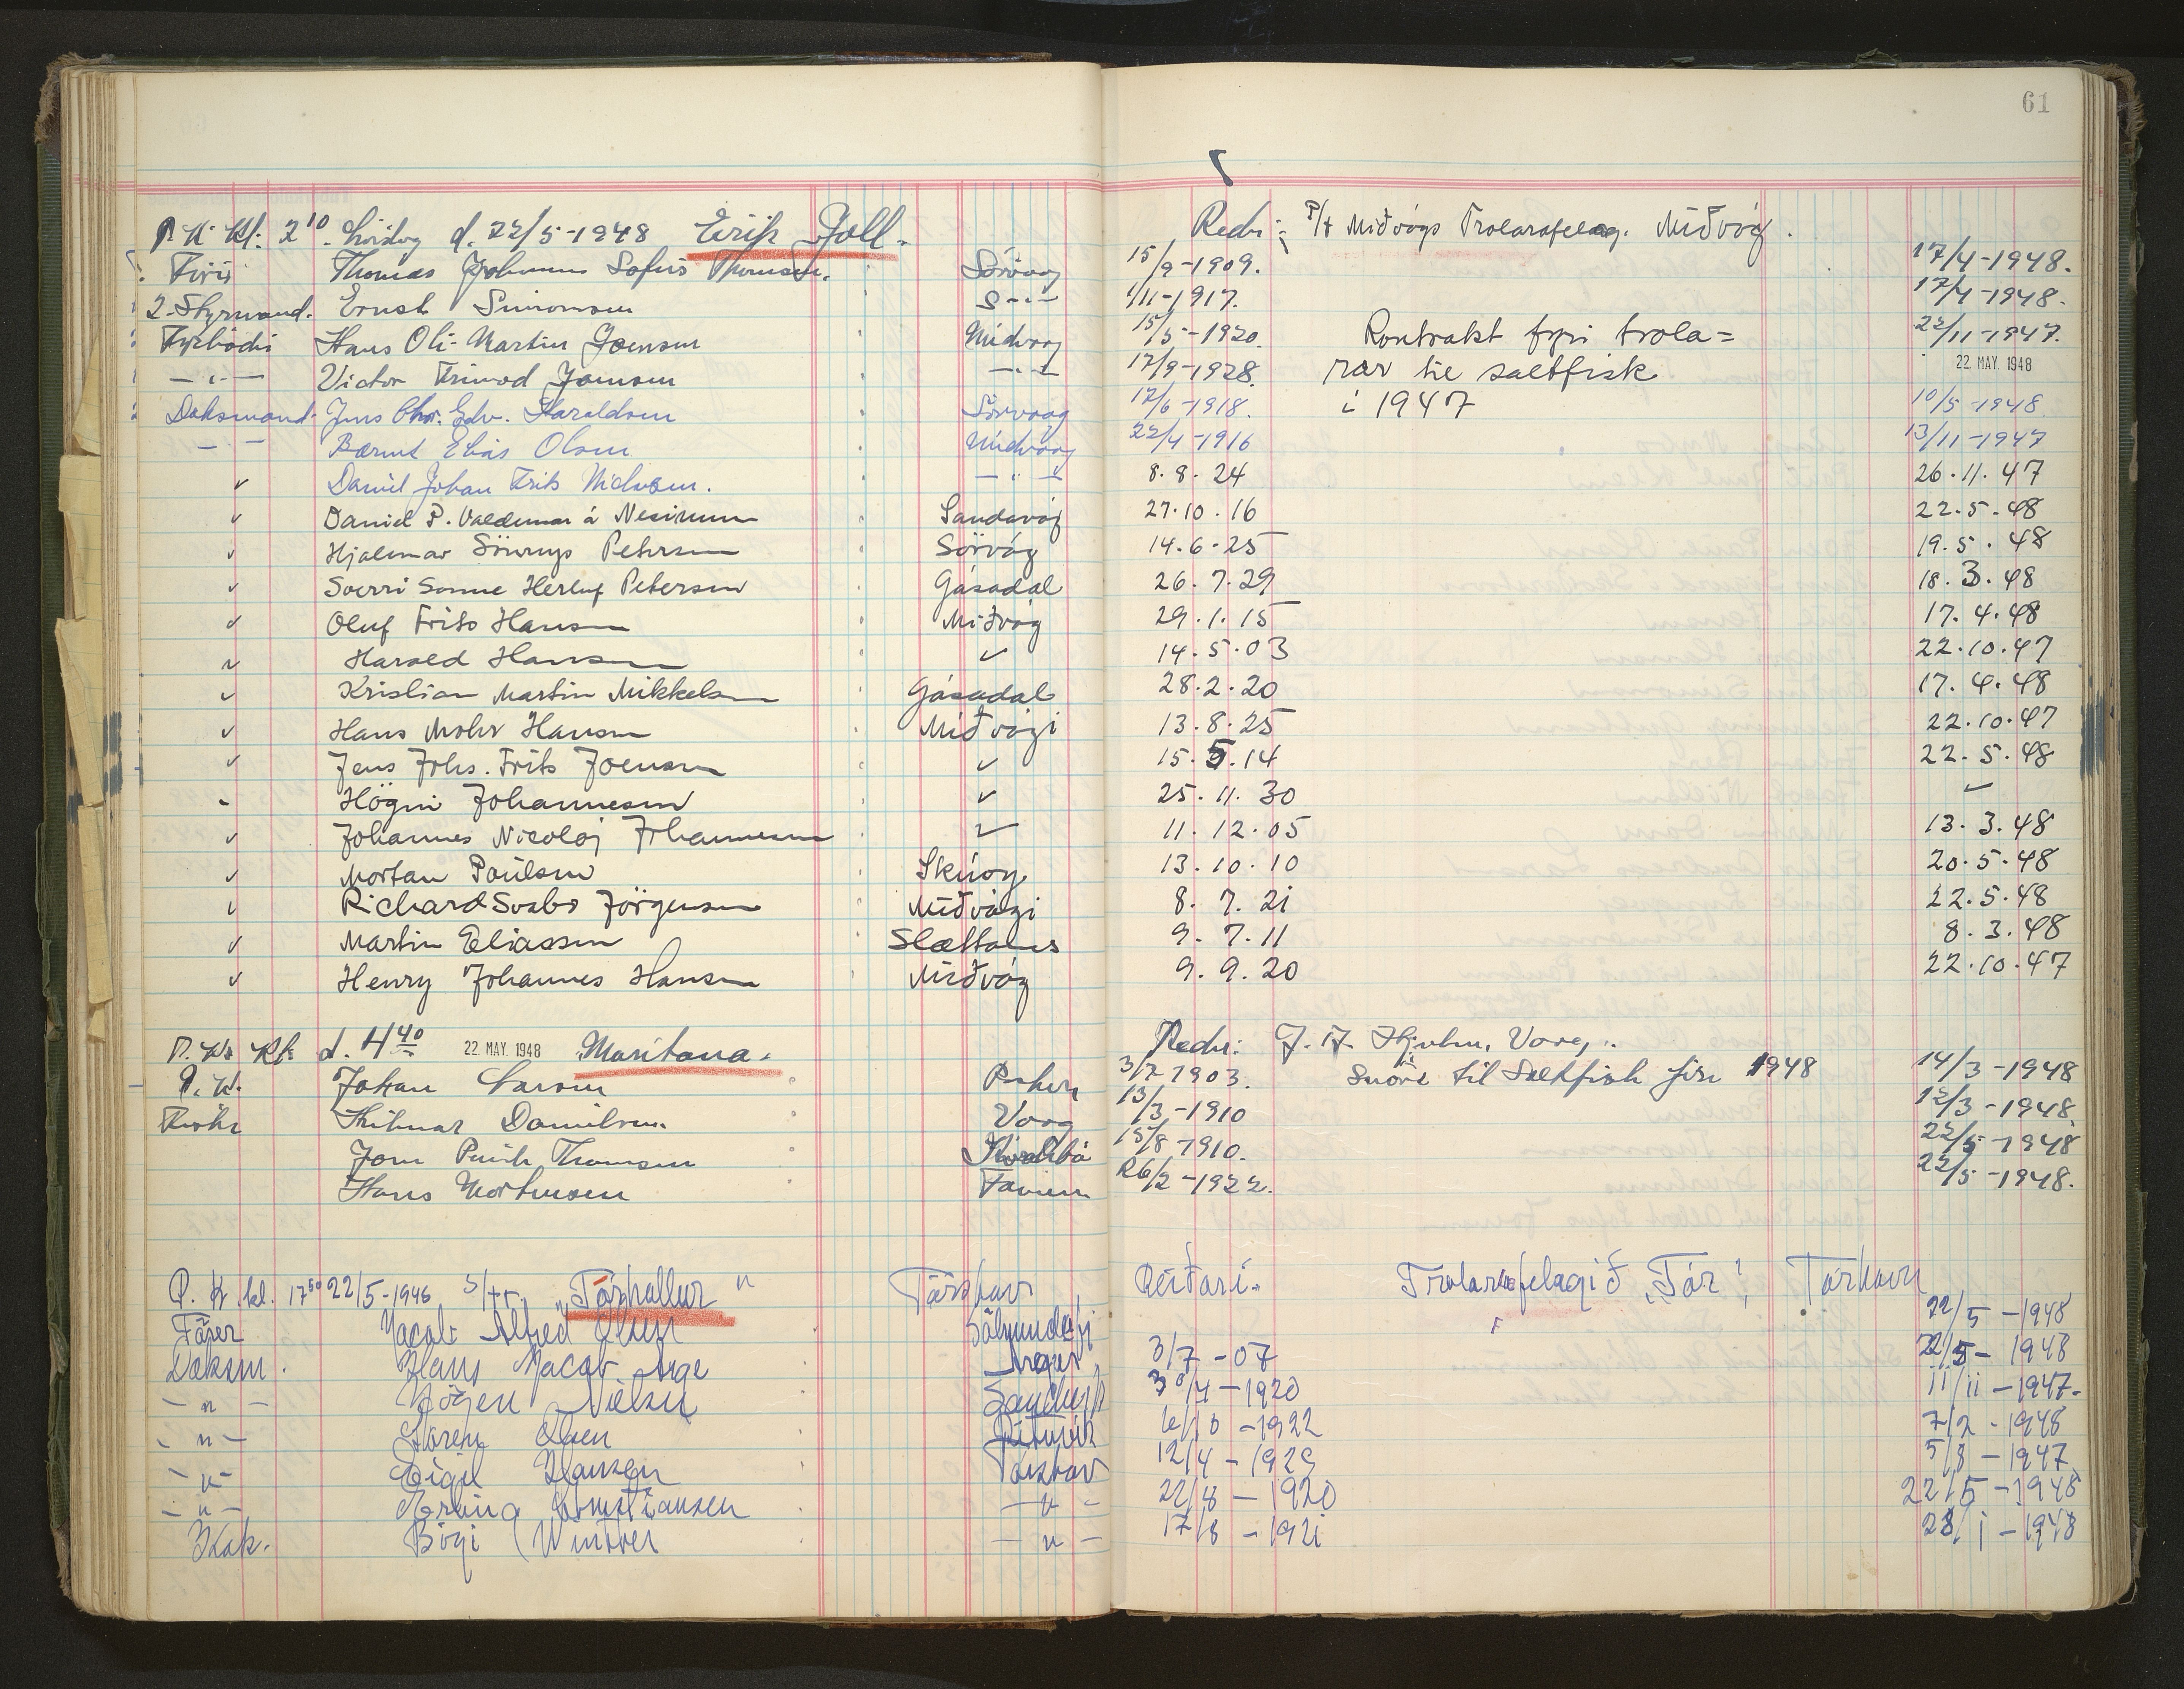 61
P. K. Kl. 2 10. Lördag d. 22/5-1948 Erik Joll. Redr: P/f Miðvágs Trolarafelag. Miðvág.
Förir Thomas Johannus Sofus Thomsen. Sörvaag 15/9-1909. 17/4-1948.
2-Styrmand. Ernst Simonsen S-"- 1/11-1917. 17/4-1948.
Fyrbödir Hans Oli-Martin Joensen Midvaag 15/5-1920. Kontrakt fyri trola= 22/11-1947.
-"- Victor Trimod Joensen -"- 17/9-1928. rar til saltfisk 22. MAY. 1948
Daksmand. Jens Chr. Edv. Haraldsen Sörvaag 17/6-1918. í 1947 10/5-1948
-"- Bærent Elias Olsen Midvaag 22/4-1916 13/11-1947
✓ Daniel Johan Frits Nielsen. -"- 8.8.24 26.11.47
✓ Daniel P. Valdemar á Nesinum Sandavág 27.10.16 22.5.48
✓ Hjalmar Petersen Sörvág 14.6.25 19.5.48
✓ Sverri Sonne Herluf Petersen Gásadal 26.7.29 18.3.48
✓ Oluf Frits Hansen Miðvág 29.1.15 17.4.48
✓ Harald Hansen ✓ 14.5.03 22.10.47
✓ Kristian Martin Mikkelsen Gásadal 28.2.20 17.4.48
✓ Hans Mohr Hansen Miðvági 13.8.25 22.10.47
✓ Jens Johs. Frits Joensen ✓ 15.5.14 22.5.48
- Högni Johannesen ✓ 25.11.30 ✓
✓ Johannes Nicolaj Johannesen ✓ 11.12.05 13.3.48
✓ Mortan Poulsen Skúoy 13.10.10 20.5.48
✓ Richard Svabo Jörgensen Miðvági 8.7.21 22.5.48
✓ Martin Eliassen Slættanes 9.7.11 8.3.48
✓ Henry Johannes Hansen Miðvág 9.9.20 22.10.47
P. K. Kl. d. 4 40 22. MAY. 1948 "Maritana. Redr: J. F. Kjølbro, Vaag.
P. K. Johan Larsen Porkeri 3/7 1903. Snøri til Saltfisk firi 1948 14/3-1948
Hilmar Danielsen. Vaag 13/3-1910 12/3-1948
Jens Thomsen 15/8-1910. 22/5-1948
Hans Mortensen Famien 26/2-1922. 22/5-1948.
P. K. kl. 17 50 22/5-1948 S/tr. "Tórhallur" Tórshavn Reiðari. Trolarafelagið "Tór", Tórshavn
Förer Jacob Alfred Olsen 22/5-1948
Daksm. Hans Jacob Arge Argir 3/7-07 22/5-1948
-"- Jógen Nielsen 30/4-1920 11/11-1947.
-"- Sören Olsen 6/10-1922 7/2-1948
-"- Eigil Hansen Tórshav 12/4-1929 5/8-1947
-"- Christiansen -"- 22/8-1920 22/5-1948
Kok. Bogi Winther -"- 17/8-1921 28/1-1948